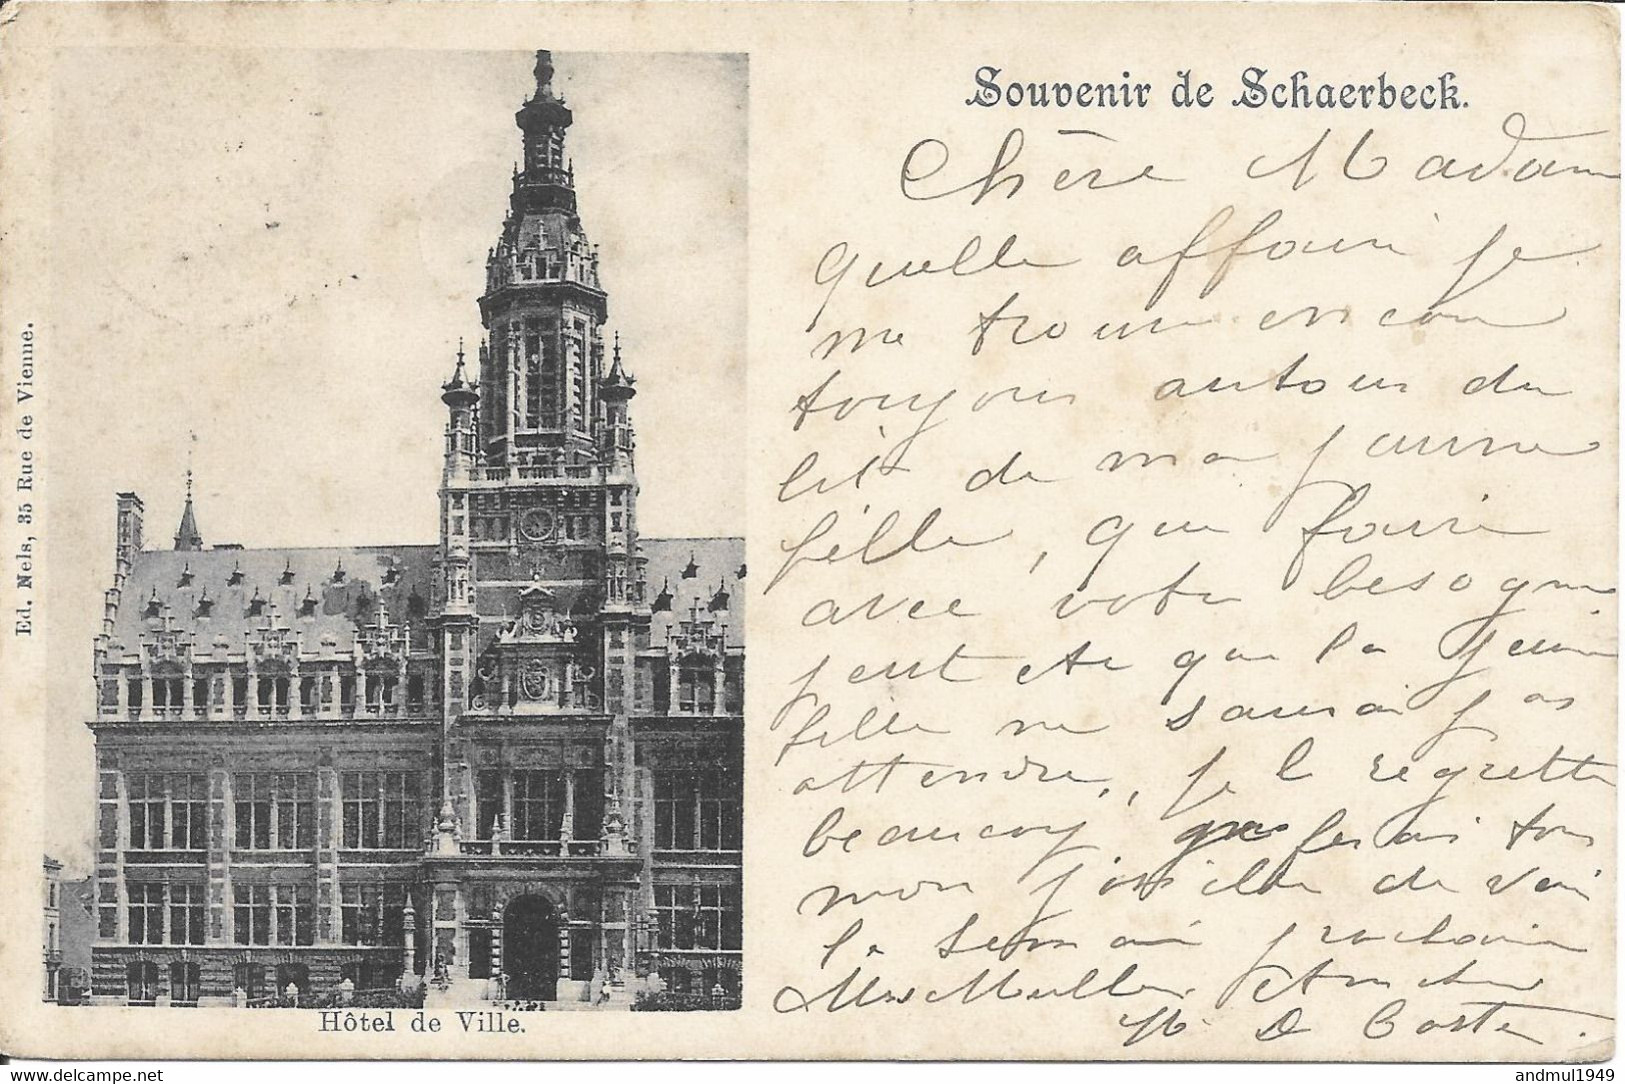 Souvenir de Schaerbeck.
Ed. Nels, 35 Rue de Vienne.
Hôtel de Ville.
Chère Madam
quelle affaire je
me trouve encore
toujour autour du
lit de ma jeune
fille, que faire
avec votre besogne
peut etre que la jeune
fille ne saurai pas
attendre, je l regrette
beaucoup que ferai tou
mon possible de veni
la semaine prochaine
Mes Meilleu
De Coster.
andmul1949